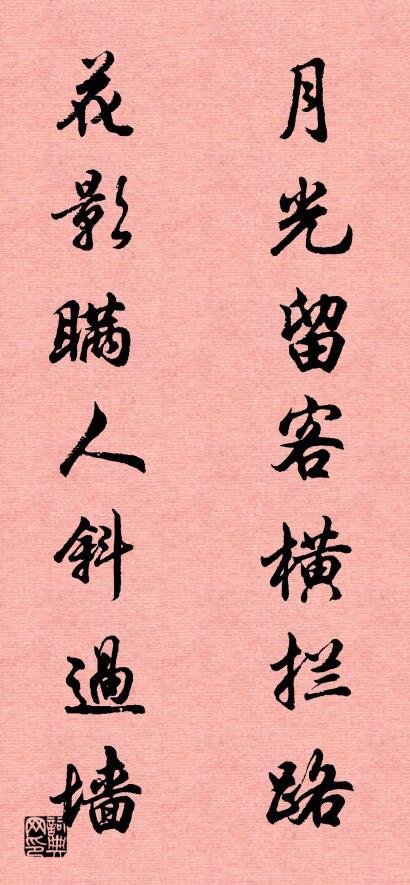 月光留客横拦路
花影瞒人斜過墙
詞典网印